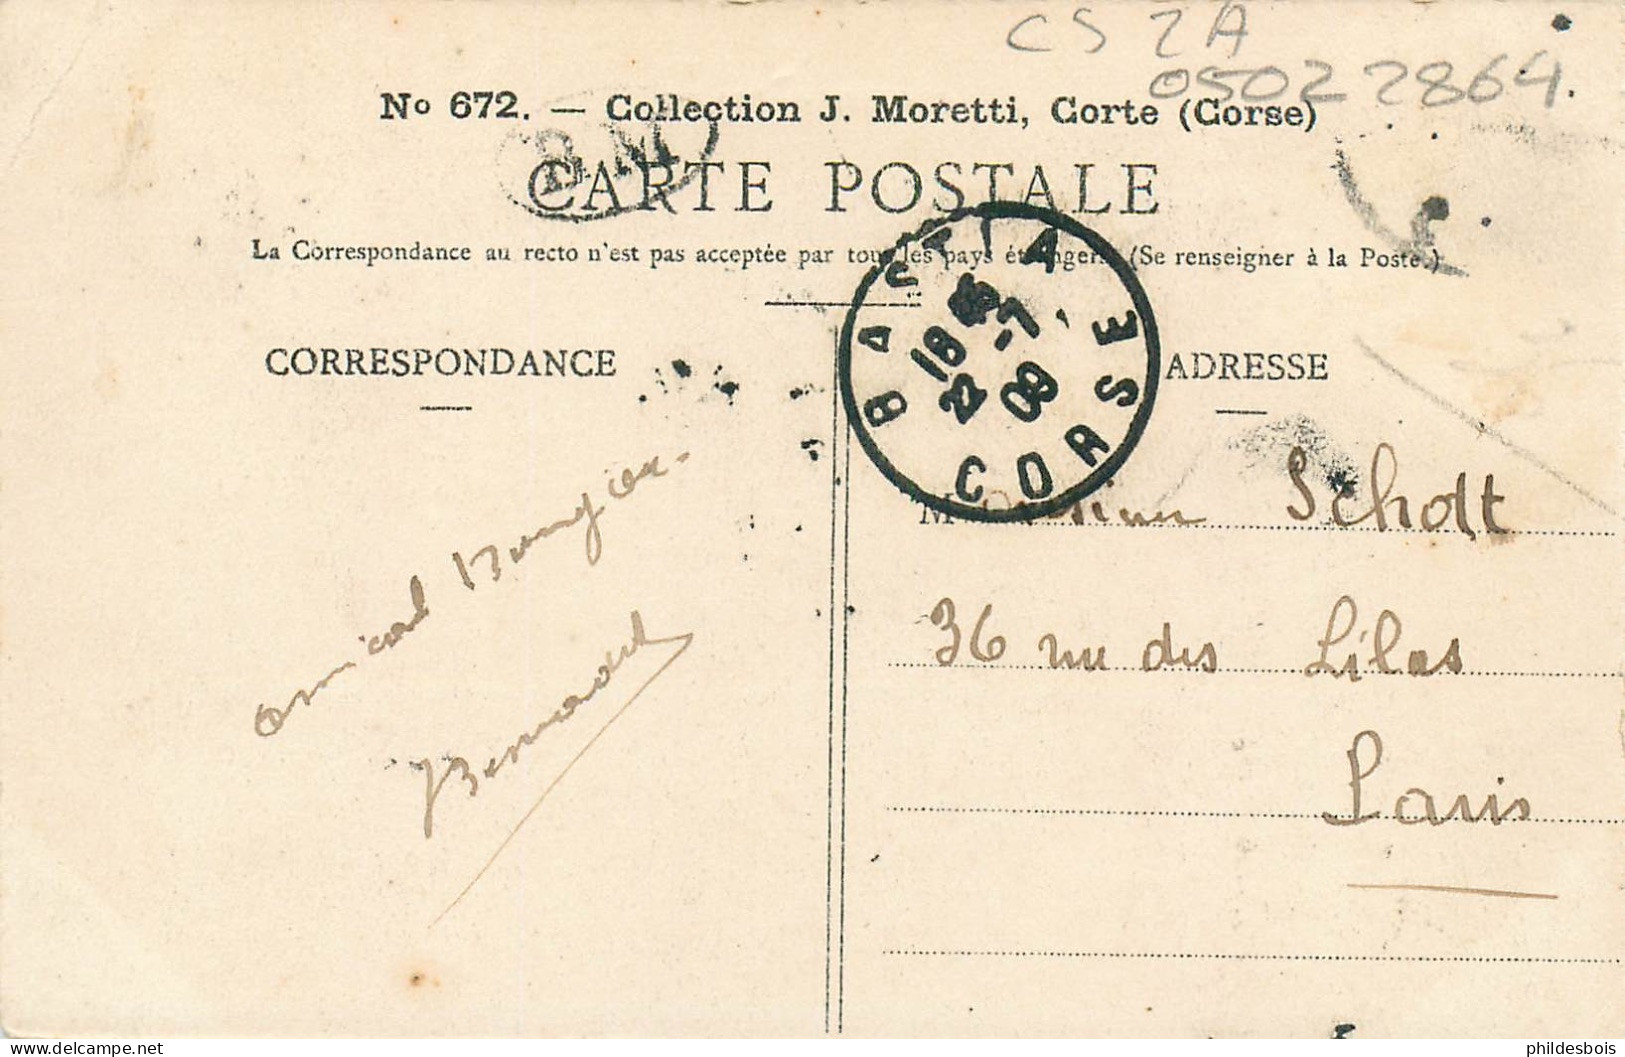 CS 2A
05022864.
No 672. — Collection J. Moretti, Corte (Corse)
B.M
CARTE POSTALE
La Correspondance au recto n'est pas acceptée par tous les pays étrangers (Se renseigner à la Poste.)
BASTIA
18 45
22 -7
09
CORSE
CORRESPONDANCE
ADRESSE
amical
Bernard
Monsieur Scholt
36 rue des Lilas
Paris
phildesbois